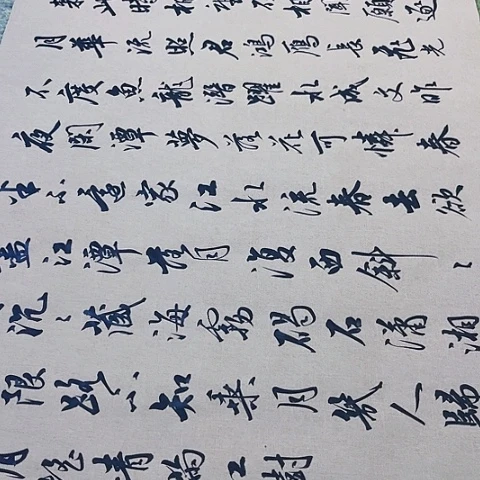 此時相望不相聞願逐
月華流照君鴻雁長飛光
不度魚龍潛躍水成文昨
夜閑潭夢落花可憐春
半不還家江水流春去欲
盡江潭落月復西斜〻
沉〻藏海霧碣石瀟湘
限路不知乘月幾人歸
月搖情滿江樹